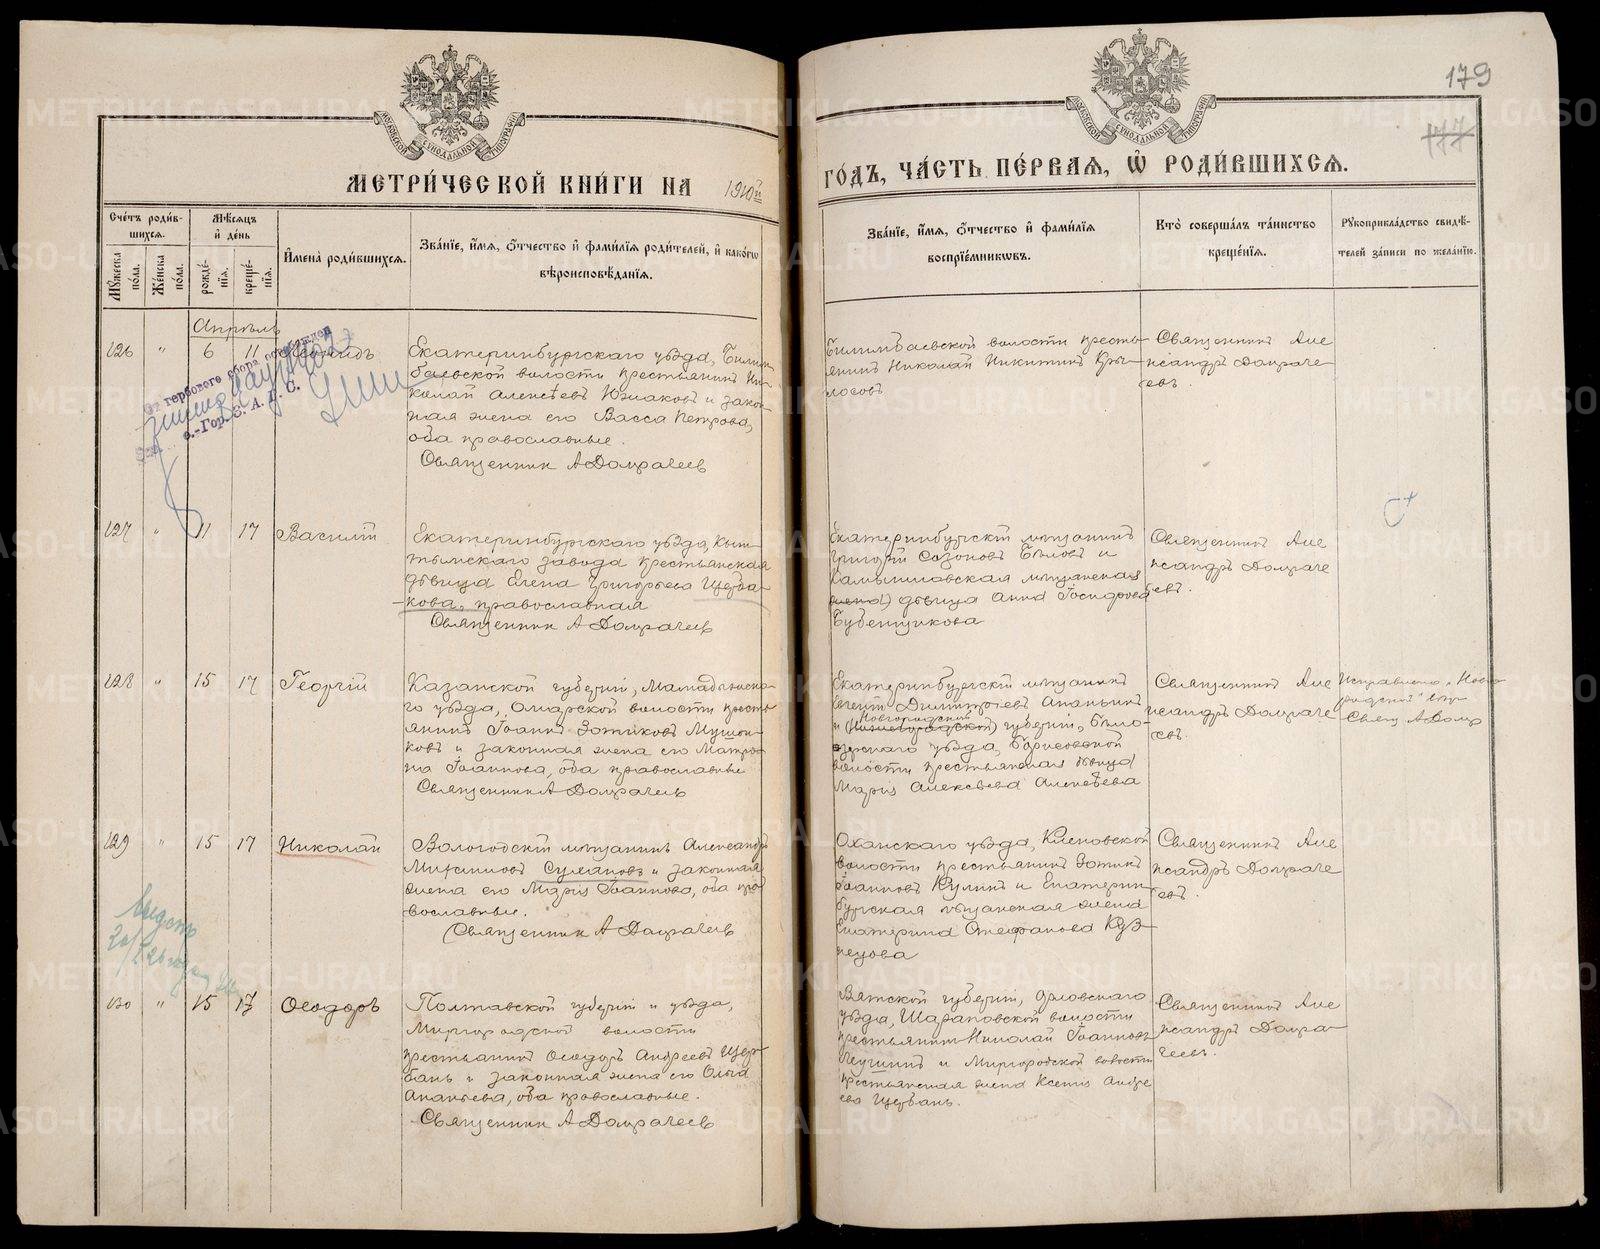 179
177
МОСКОВСКОЙ СѴНОДАЛЬНОЙ ТИПОГРАФІИ
МОСКОВСКОЙ СѴНОДАЛЬНОЙ ТИПОГРАФІИ
МЕТРИ́ЧЕСКОЙ КНИ́ГИ НА 1910й
ГО́ДЪ, ЧА́СТЬ ПЕ́РВАЯ, Ѽ РОДИ́ВШИХСЯ.
Сче́тъ роди́в-
шихся.
Му́жеска по́ла.
Же́нска по́ла.
Мѣ́сяцъ
и҆ де́нь
рожде́-
нїя.
креще́-
нїя.
И҆мена̀ роди́вшихся.
Зва́нїе, и҆́мя, ѻ҆́тчество и҆ фами́лїя роди́телей, и҆ како́гѡ
вѣроисповѣ́данїя.
Зва́нїе, и҆́мя, ѻ҆́тчество и҆ фами́лїя
воспрїе́мникѡвъ.
Кто̀ соверша́лъ та́инство
креще́нїя.
Рꙋкоприкла́дство свидѣ́-
телей за́писи по жела́нїю.
Апрѣль
126 " 6 11
Екатеринбургскаго уѣзда, Билим-
баевской волости крестьянинъ Ни-
колай Алексѣевъ Южаковъ и закон-
ная жена его Васса Петрова,
оба православные.
Священник А Домрачеев
Билимбаевской волости кресть-
янинъ Николай Никитинъ Кры-
лосовъ
Священникъ Але
ксандръ Домраче
евъ.
От гербового сбора освобожден
127 " 11 17 Василій
Екатеринбургскаго уѣзда, Кыш-
тымскаго завода крестьянская
дѣвица Елена Григорьева Щерба-
кова, православная
Священник А Домрачеев
Екатеринбургскій мѣщанинъ
Григорій Созоновъ Бѣловъ и
Камышловская мѣщанская
дѣвица Анна Госифова
Бубенщикова
Священникъ Але
ксандръ Домраче
евъ.
128 " 15 17 Георгій
Казанской губерніи, Мамадышска-
го уѣзда, Омарской волости кресть-
янинъ Іоаннъ Зотиковъ Мушон-
ковъ и законная жена его Матро-
на Іоаннова, оба православные
Священник А Домрачеев
Екатеринбургскій мѣщанинъ
Евгеній Димитріевъ Ананьинъ
Новгородской
и (Нижегородской) губерніи, Бѣло-
зерскаго уѣзда, Борисовской
волости крестьянская дѣвица
Марія Алексѣева Алексѣева
Священникъ Але
ксандръ Домраче
евъ.
Исправлено "Новго
родской" вѣрно
Свящ А Домр
129 " 15 17 Николай
Вологодскій мѣщанинъ Александръ
Сумановъ и законная
жена его Марія Іоаннова, оба пра-
вославные.
Священник А Домрачеев
Оханскаго уѣзда, Кленовской
волости крестьянинъ Зотикъ
Іоанновъ Куликъ и Екатерин-
бургская мѣщанская жена
Екатерина Стефанова Куз-
нецова
Священникъ Але
ксандръ Домраче
евъ.
130 " 15 17 Ѳеодоръ
Полтавской губерніи и уѣзда,
Миргородской волости
крестьянинъ Ѳеодоръ Андреевъ Щер-
бань и законная жена его Ольга
Ананьева, оба православные.
Священник А Домрачеев
Вятской губерніи, Орловскаго
уѣзда, Шараповской волости
крестьянинъ Николай Іоанновъ
и Миргородской волости
крестьянская жена Ксенія Андре
ева Щербань.
Священникъ Але
ксандръ Домра-
чеевъ.
METRIKI.GASO-URAL.RU